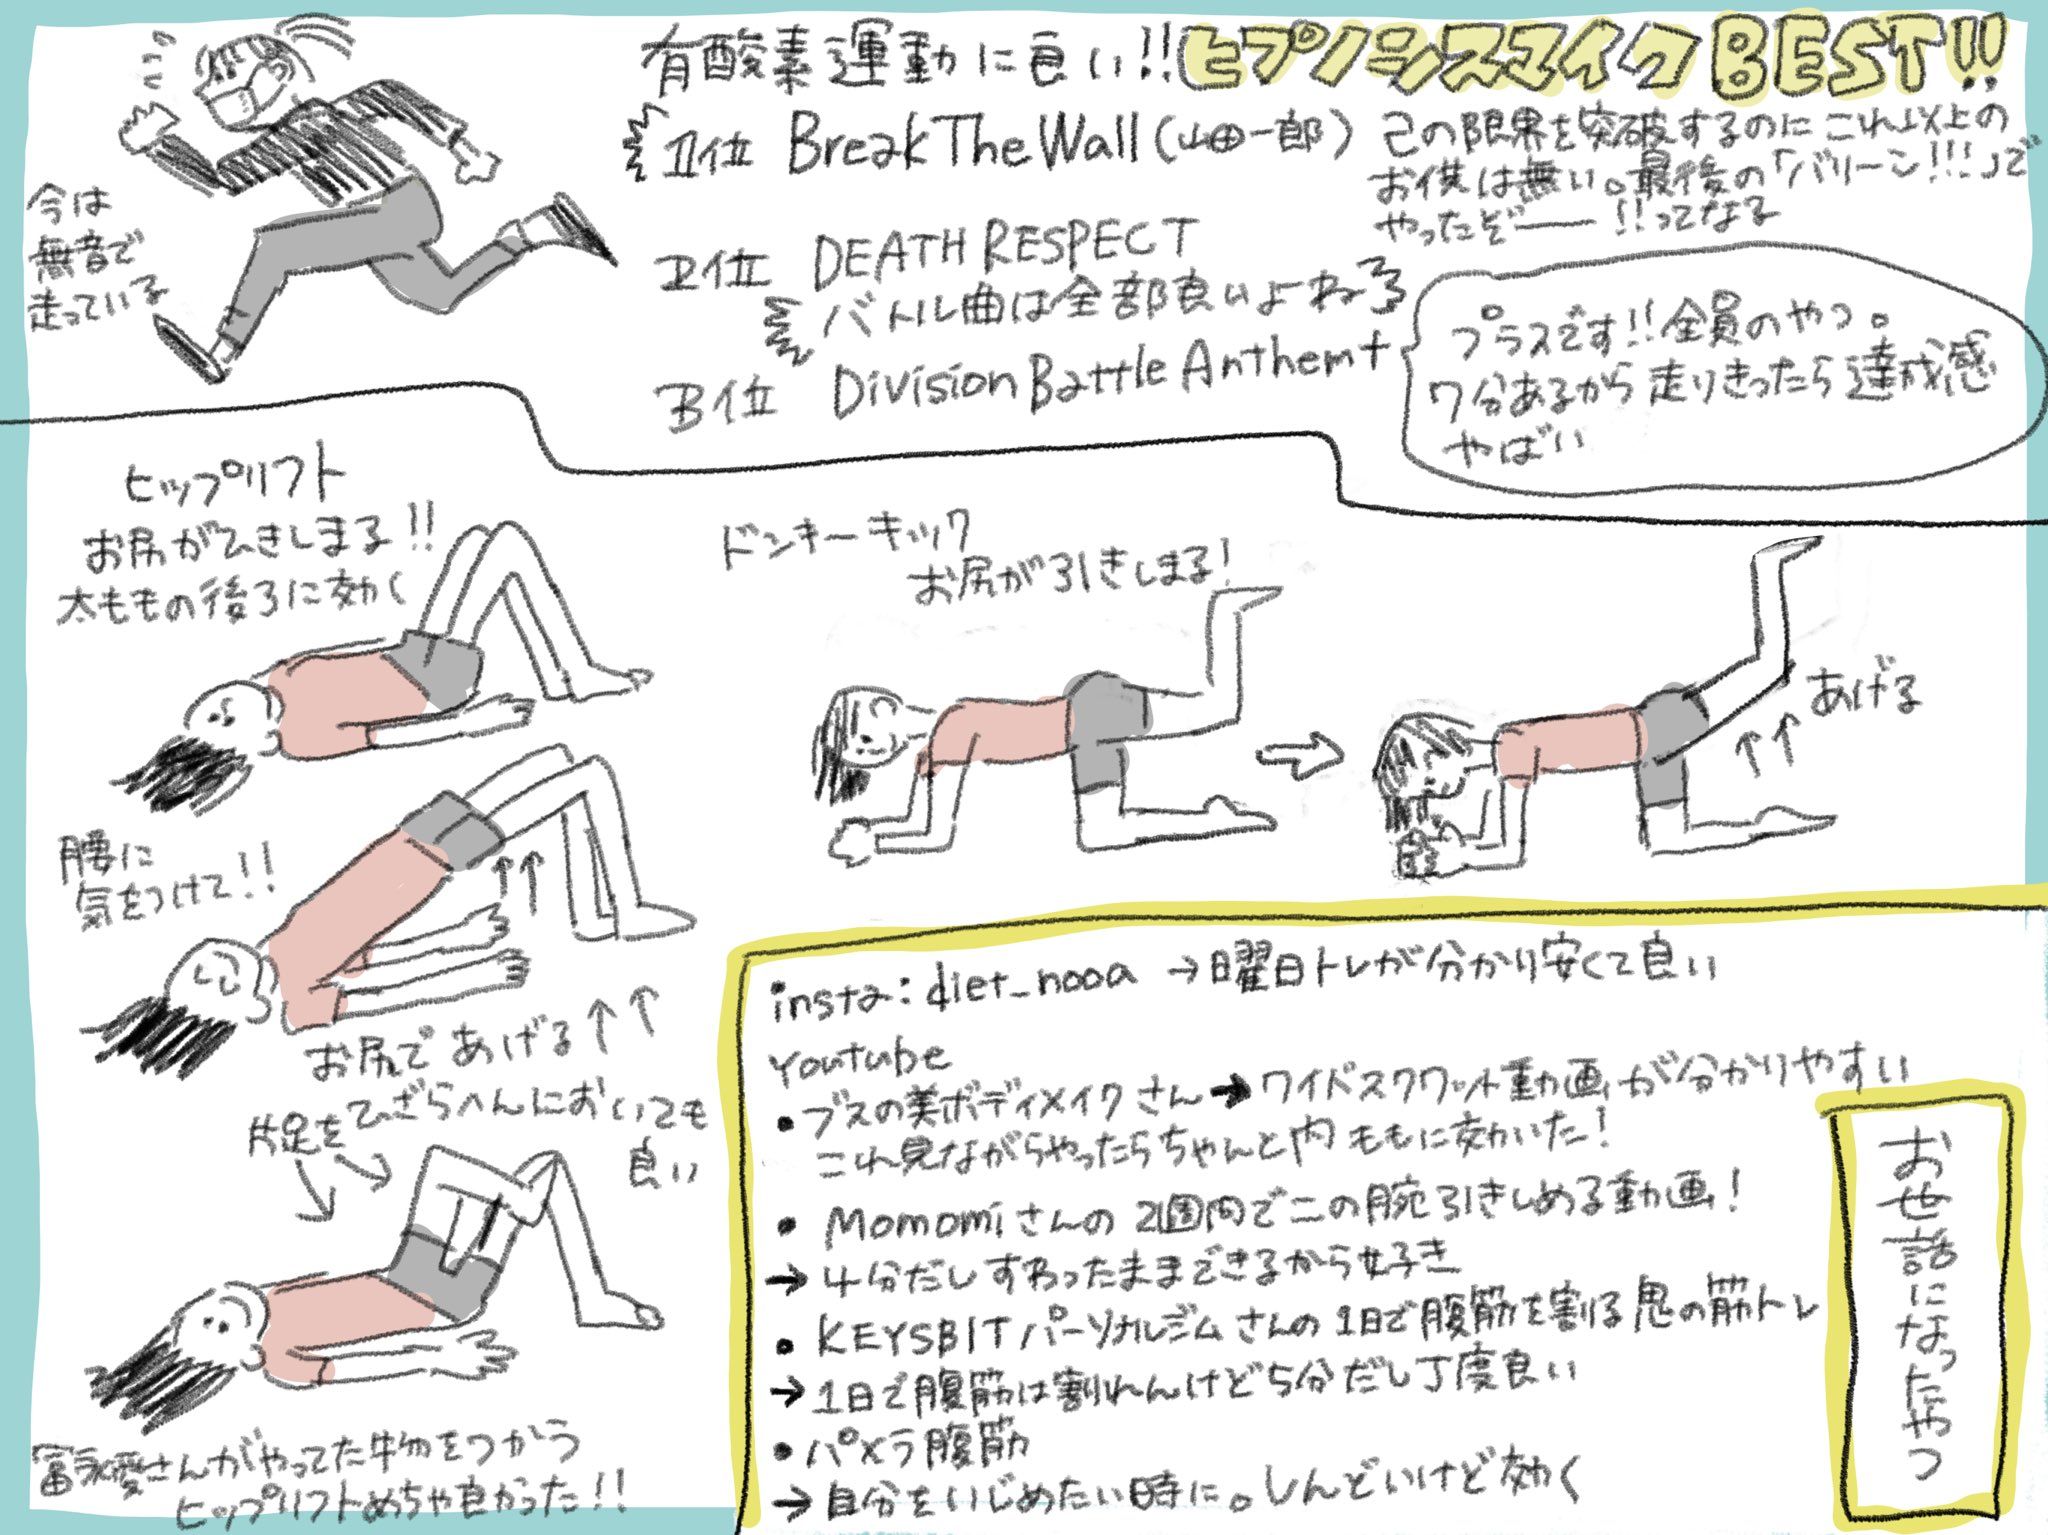 有酸素運動に良い!!ヒプノシスマイクBEST!!
1位 Break The Wall(山田一郎)
己の限界を突破するのにこれ以上の
お供は無い。最後の「バリーン!!!」で
やったぞ――!!ってなる
今は
無音で
走っている
2位 DEATH RESPECT
バトル曲は全部良いよね
3位 Division Battle Anthem+
プラスです!!全員のやつ。
7分あるから走りきったら達成感
やばい
ヒップリフト
お尻がひきしまる!!
太ももの後ろに効く
腰に
気をつけて!!
お尻であげる↑↑
片足をひざらへんにおいても
良い
冨永愛さんがやってた物をつかう
ヒップリフトめちゃ良かった!!
ドンキーキック
お尻が引きしまる!
あげる
insta:diet_nooa→曜日トレが分かり安くて良い
youtube
・ブスの美ボディメイクさん→ワイドスクワット動画が分かりやすい
これ見ながらやったらちゃんと内ももに効いた!
・Momomiさんの2週間で二の腕引きしめる動画!
→4分だしすわったままできるから好き
・KEYSBITパーソナルジムさんの1日で腹筋を割る鬼の筋トレ
→1日で腹筋は割れんけど5分だし丁度良い
・パメラ腹筋
→自分をいじめたい時に。しんどいけど効く
お世話になったやつ